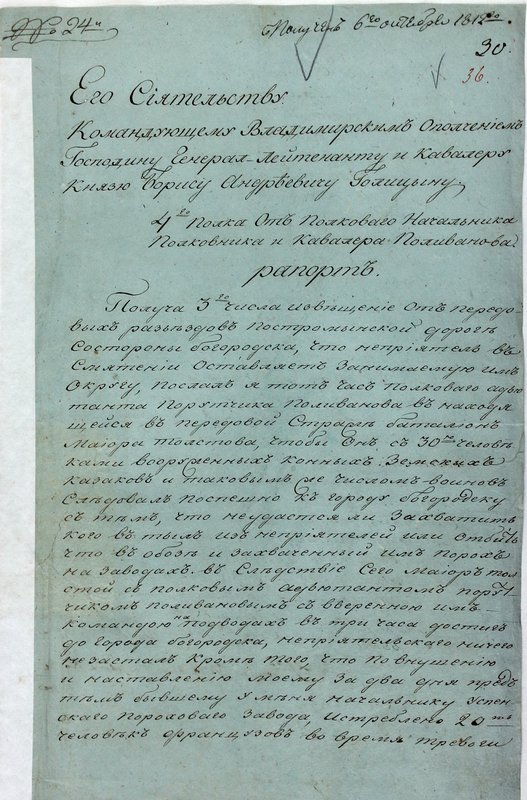 № 24й
Получен 6го октебря 1812го.
30
36.
Его Сіятельству
Командующему Владимирскимъ Ополченіемъ
Господину Генерал-Лейтенанту и Кавалеру
Князю Борису Андрѣевичу Голицыну,
4го Полка Отъ Полковаго Начальника
Полковника и Кавалера Поливанова
рапортъ.
Получа 3го числа извѣщеніе отъ передо-
выхъ разъѣздовъ постромынской дорогѣ
состороны богородска, что непріятель въ
смятеніи оставляетъ занимаемую имъ
округу, послалъ я тотъ часъ полковаго адью
танта Порутчика Поливанова въ находя
щейся въ передовой страже баталіонъ
Маіора толстова, чтобы онъ съ 30тю человѣ
ками вооруженныхъ конныхъ земскихъ
казаковъ и таковымъ же числомъ воиновъ
слѣдовалъ поспешно къ городу богородску
съ тѣмъ, что неудастся ли захватить
кого въ тылъ изъ непріятелей или отбить
что въ обозѣ и захваченный имъ порохъ
на заводахъ. въ слѣдствіе сего маіоръ тол
стой съ полковымъ адьютантомъ пору
чикомъ поливановымъ съ вверенною имъ
командою на подводахъ въ три часа достигъ
до города богородска, непріятельскаго ничего
незасталъ кромѣ того, что по внушенію
и наставленію моему за два дня предъ
тѣмъ бывшему у меня начальнику успен
скаго пороховаго завода, истреблено 20ть
человѣкъ французовъ во время тревоги